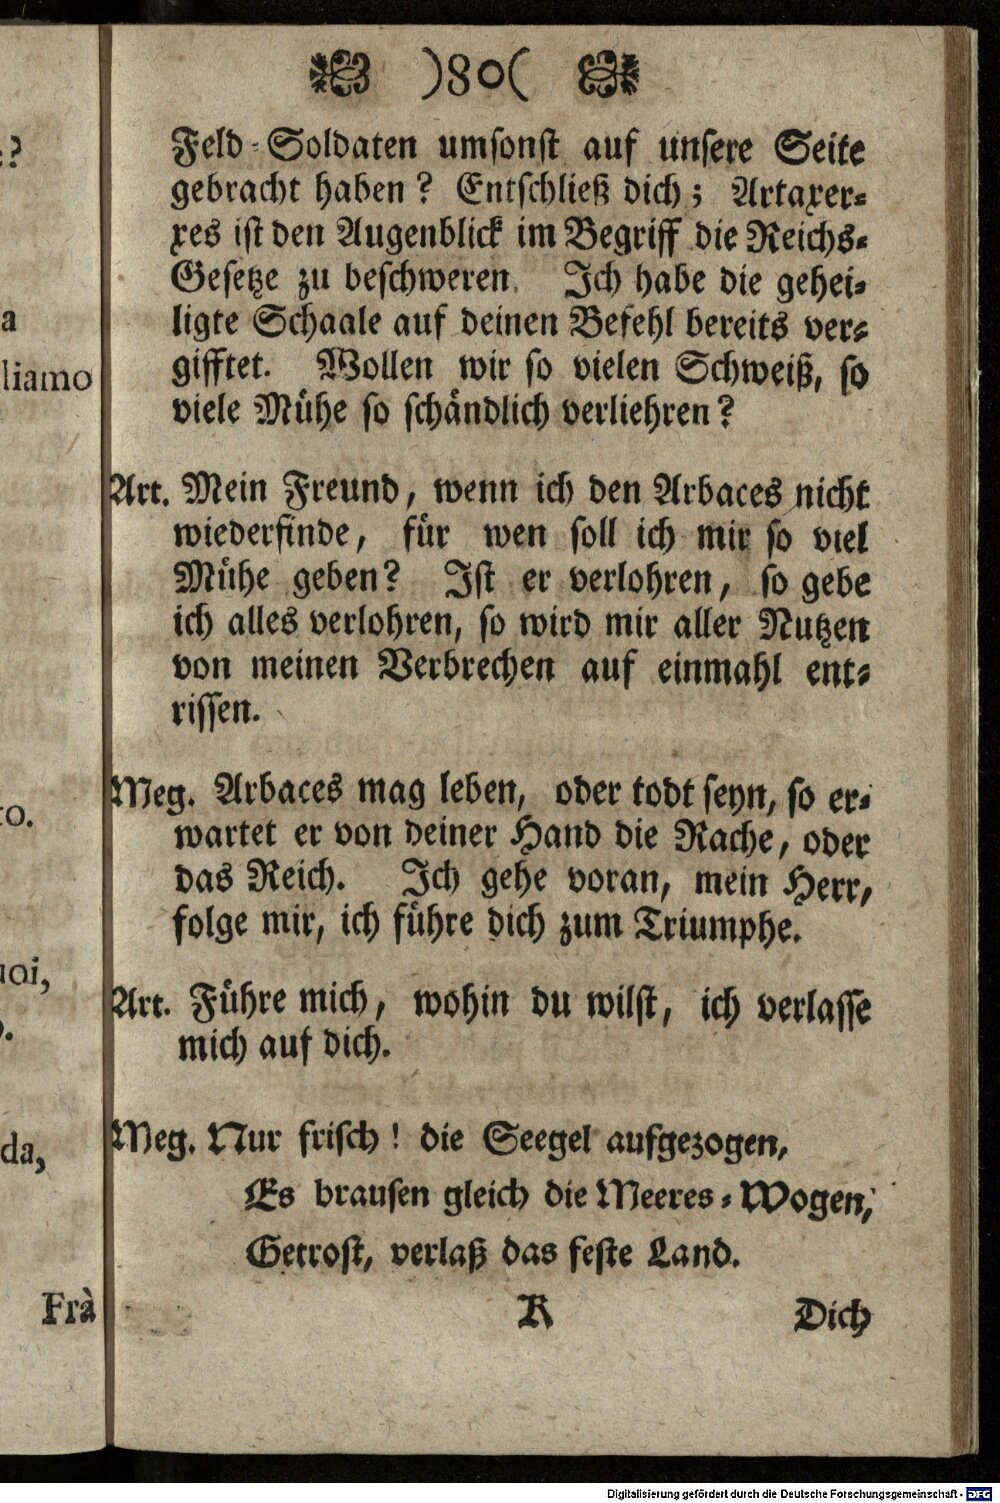 e?
a
liamo
to.
uoi,
o.
da,
Frà
)80(
Feld-Soldaten umsonst auf unsere Seite
gebracht haben? Entschließ dich; Artaxer-
xes ist den Augenblick im Begriff die Reichs-
Gesetze zu beschweren. Ich habe die gehei-
ligte Schaale auf deinen Befehl bereits ver-
gifftet. Wollen wir so vielen Schweiß, so
viele Mühe so schändlich verliehren?
Art. Mein Freund, wenn ich den Arbaces nicht
wiederfinde, für wen soll ich mir so viel
Mühe geben? Ist er verlohren, so gebe
ich alles verlohren, so wird mir aller Nutzen
von meinen Verbrechen auf einmahl ent-
rissen.
Meg. Arbaces mag leben, oder todt seyn, so er-
wartet er von deiner Hand die Rache, oder
das Reich. Ich gehe voran, mein Herr,
folge mir, ich führe dich zum Triumphe.
Art. Führe mich, wohin du wilst, ich verlasse
mich auf dich.
Meg. Nur frisch! die Seegel aufgezogen,
Es brausen gleich die Meeres-Wogen,
Getrost, verlaß das feste Land.
K Dich
Digitalisierung gefördert durch die Deutsche Forschungsgemeinschaft - DFG